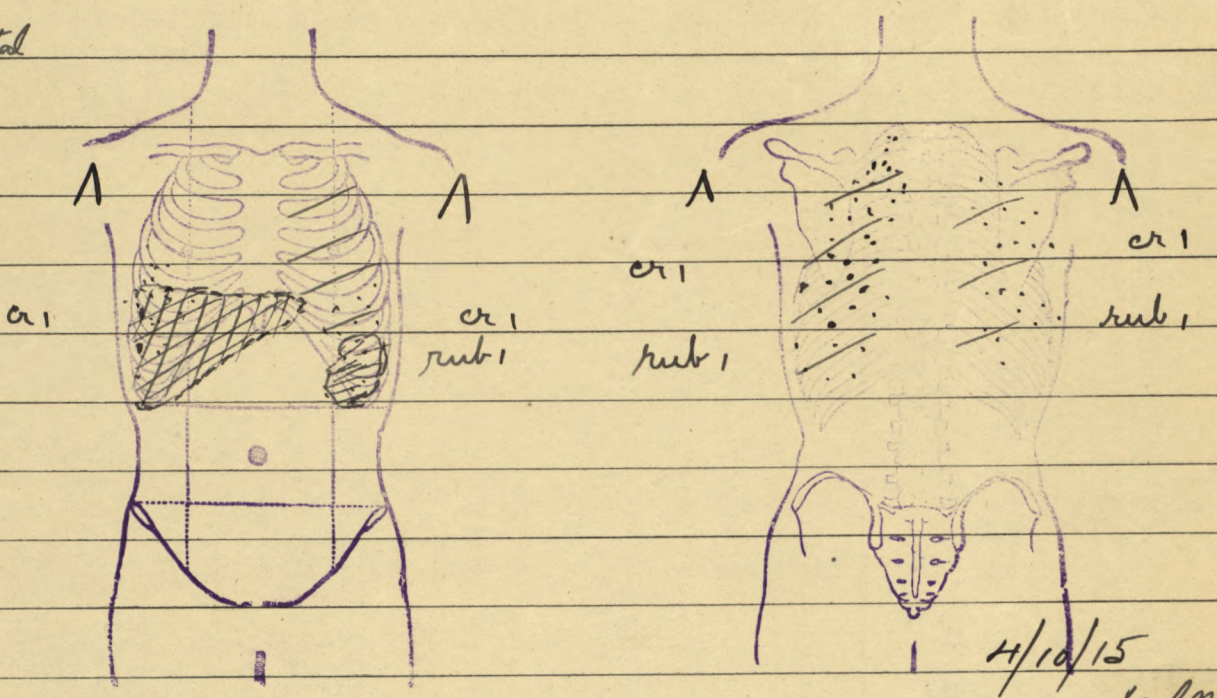 cr 1
cr 1
rub 1
cr 1
rub 1
cr 1
rub 1
4/10/15